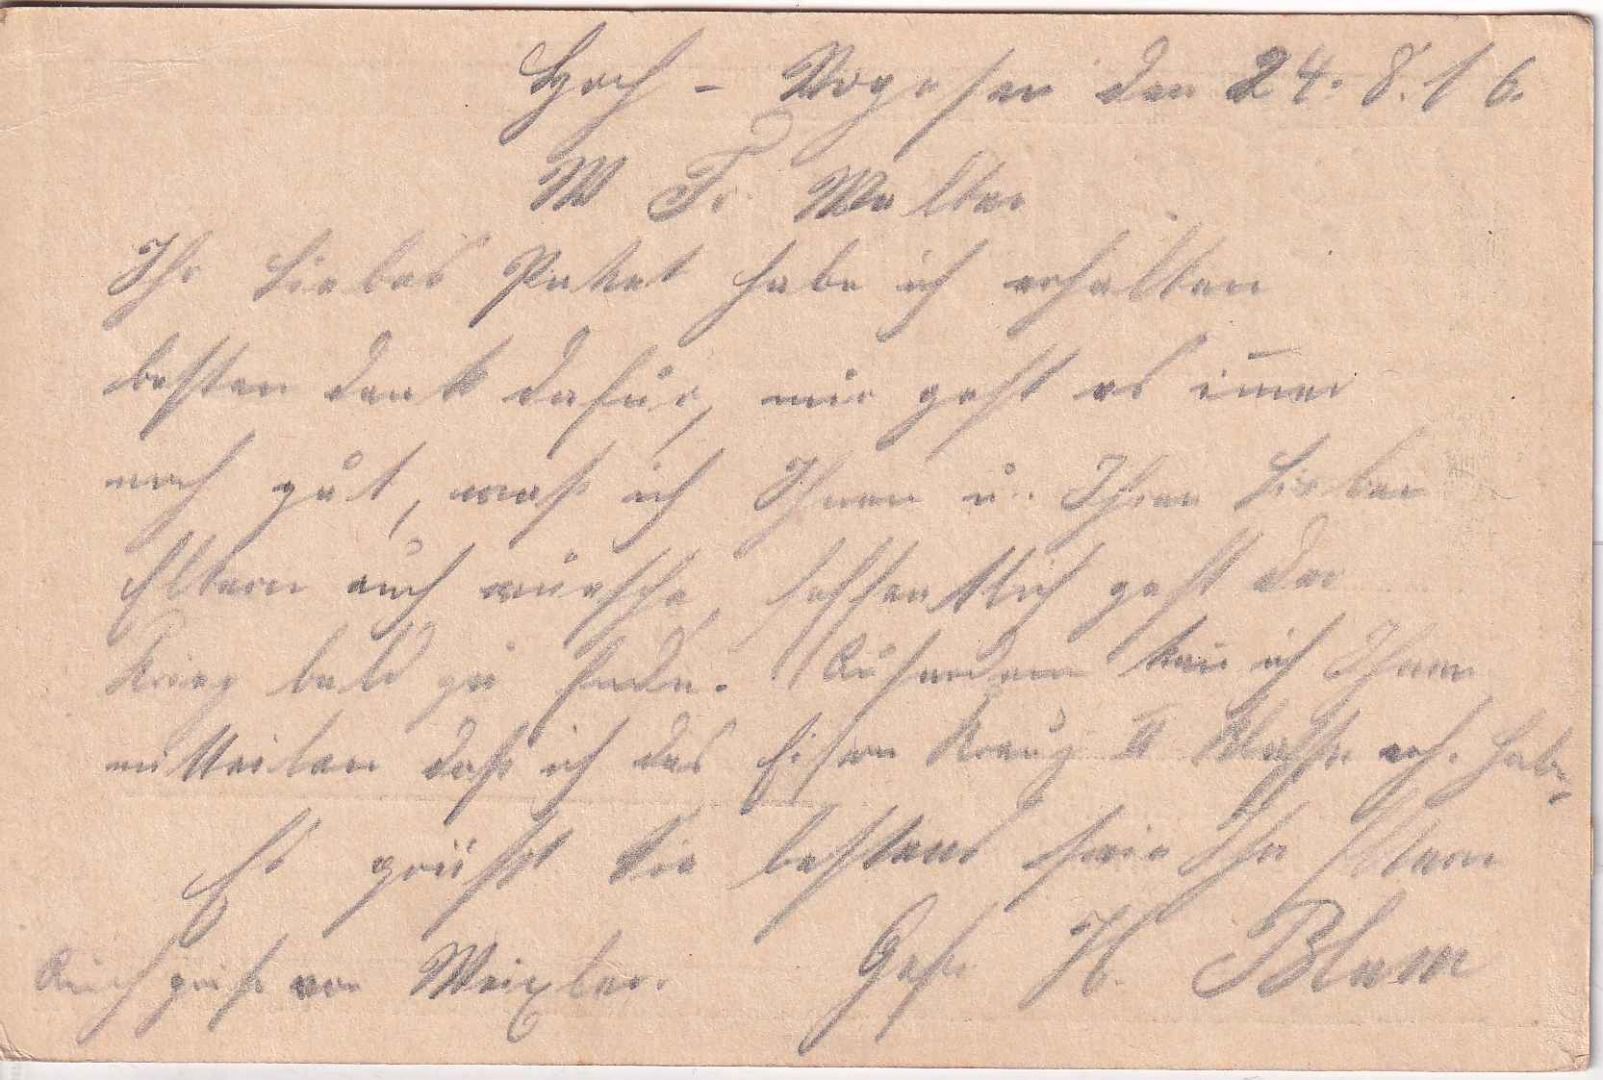 Hoch - Vogesen den 24. 8. 16.
W Fr. Walter
Ihr liebes Paket habe ich erhalten
besten dank dafür, mir geht es im̅er
noch gut, was ich Ihnen u. Ihren lieben
Eltern auch wünsche, hoffentlich geht der
Krieg bald zu Ende. Auserdem kan ich Ihnen
mitteilen daß ich das Eisern Kreuz II Klasse erh. habe.
Es grüßt Sie bestens sowie Ihr Eltern
Gefr. H. Blum
Auch gruß von